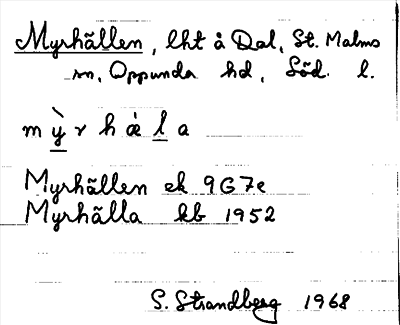 Myrhällen, lht å Dal, St. Malms
sn, Oppunda hd, Söd. l.
m ỳ r h æ̀ l a
Myrhällen ek 9G7e
Myrhälla kb 1952
S. Strandberg 1968